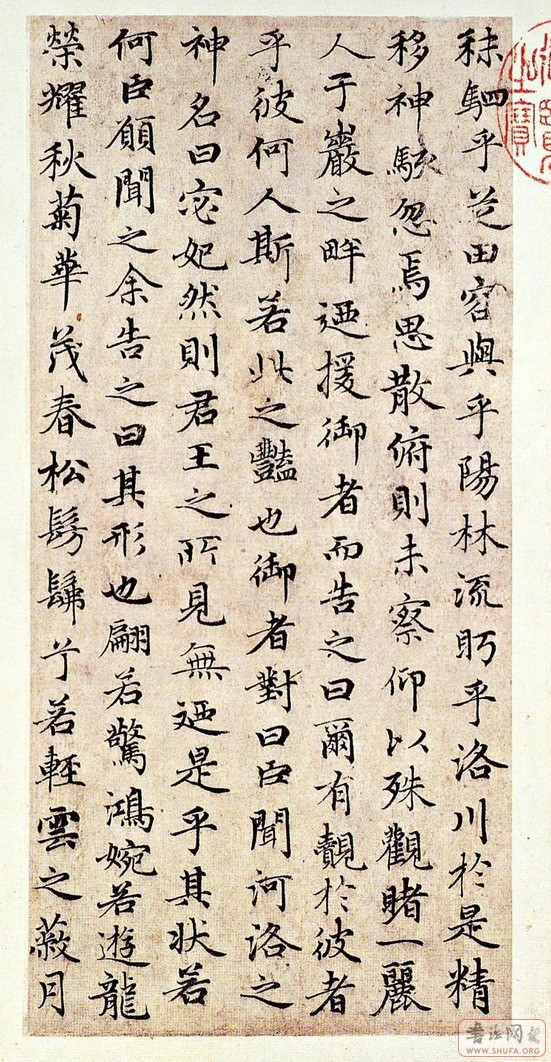 秣駟乎芝田容與乎陽林流眄乎洛川於是精
移神駭忽焉思散俯則未察仰以殊觀睹一麗
人于巖之畔迺援御者而告之曰爾有覿於彼者
乎彼何人斯若此之豔也御者對曰臣聞河洛之
神名曰宓妃然則君王之所見無迺是乎其狀若
何臣願聞之余告之曰其形也翩若驚鴻婉若遊龍
榮耀秋菊華茂春松髣髴兮若輕雲之蔽月
之寶
書法网
WWW.SHUFA.ORG